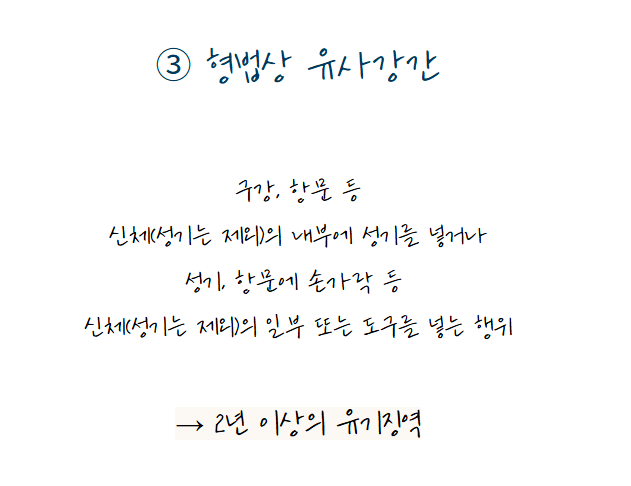 ③ 형법상 유사강간
구강, 항문 등
신체(성기는 제외)의 내부에 성기를 넣거나
성기, 항문에 손가락 등
신체(성기는 제외)의 일부 또는 도구를 넣는 행위
→ 2년 이상의 유기징역